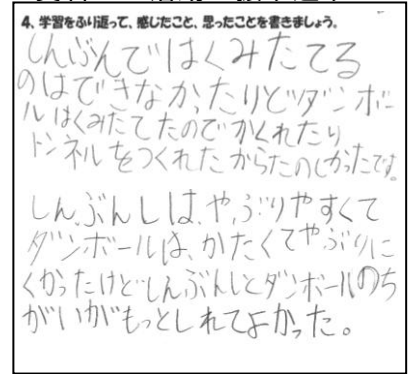 4、学習をふり返って、感じたこと、思ったことを書きましょう。
しんぶんではくみたてる
のはできなかったけどダンボー
ルはくみたてたのでかくれたり
トンネルをつくれたからたのしかったです。
しんぶんしは、やぶりやすくて
ダンボールは、かたくてやぶりに
くかったけどしんぶんしとダンボールのち
がいがもっとしれてよかった。